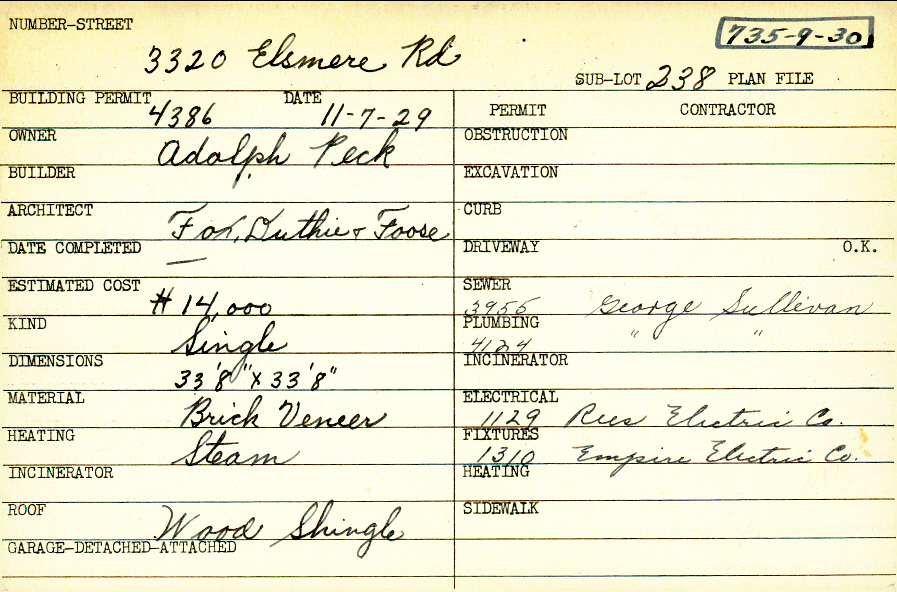 NUMBER-STREET
735-9-30
3320 Elsmere Rd
SUB-LOT 238 PLAN FILE
BUILDING PERMIT 4386 DATE 11-7-29
OWNER Adolph Peck
BUILDER
ARCHITECT Fox, Duthie & Foose
DATE COMPLETED —
ESTIMATED COST $14,000
KIND Single
DIMENSIONS 33'8" X 33'8"
MATERIAL Brick Veneer
HEATING Steam
INCINERATOR
ROOF Wood Shingle
GARAGE-DETACHED-ATTACHED
PERMIT CONTRACTOR
OBSTRUCTION
EXCAVATION
CURB
DRIVEWAY O.K.
SEWER 3955 George Sullivan
PLUMBING 4124 " "
INCINERATOR
ELECTRICAL 1129 Rees Electric Co.
FIXTURES 1310 Empire Electric Co.
HEATING
SIDEWALK